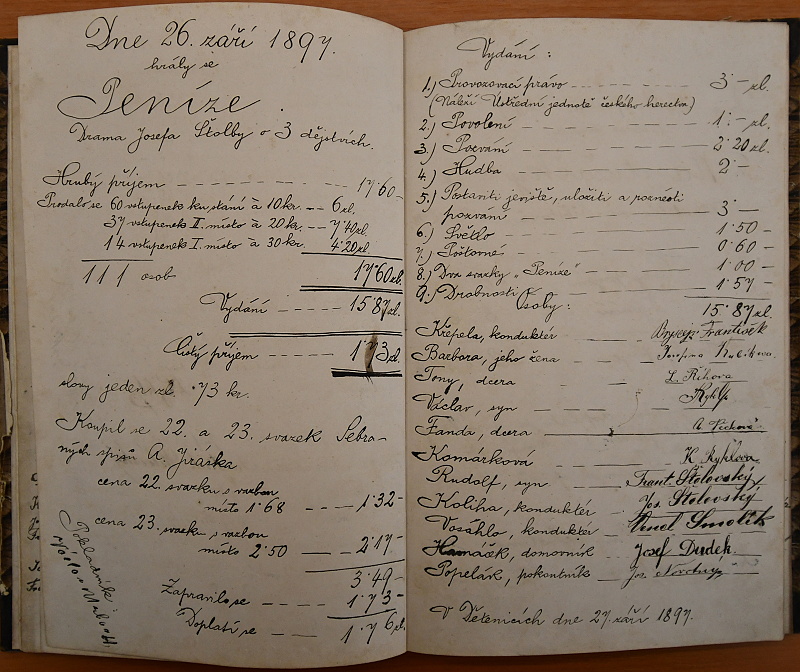 Dne 26. září 1897.
hrály se
Peníze.
Drama Josefa Štolby o 3 dějstvích.
Hrubý příjem - - - 17·60-
Prodalo se 60 vstupenek ku stání à 10 kr. - - 6 zl.
37 vstupenek II. místo à 20 kr. - - 7·40 zl.
14 vstupenek I. místo à 30 kr. 4·20 zl.
111 osob 17·60 zl.
Vydání - - - 15·87 zl.
Čistý příjem - - - 1·73 zl.
slovy jeden zl. 73 kr.
Koupil se 22. a 23. svazek Sebra-
ných spisů A. Jiráska
cena 22. svazku s vazbou
místo 1·68 - - - 1·32-
cena 23. svazku s vazbou
místo 2·50 - - - 2·17-
3·49-
Zapravilo se - - - 1·73-
Doplatí se - - - 1·76 zl.
Pokladník:
Vydání:
1.) Provozovací právo - - - 3·- zl.
(Náleží Ústřední jednotě českého herectva)
2.) Povolení - - - 1·- zl.
3.) Pozvání - - - 2·20 zl.
4.) Hudba - - - 2·-
5.) Postaviti jeviště, uložiti a roznésti
pozvání - - - 3·-
6.) Světlo - - - 1·50-
7.) Poštovné - - - 0·60-
8.) Dva svazky „Peníze" - - - 1·00-
9.) Drobnosti - - - 1·57-
15·87 zl.
Osoby:
Křepela, konduktér - - - František
Barbora, jeho žena - - - Josefina
Tony, dcera - - - L. Říhova
Václav, syn - - - Ryhly
Fanda, dcera A.
Komárková K. Ryhlova
Rudolf, syn - - - Frant. Štolovský
Koliha, konduktér - - - Jos. Štolovský
Vosáhlo, konduktér - - - Smolík
Hamáček, domovník - - - Josef Dudek.
Popelář, pokoutník - - - Jos.
V Dětenicích dne 27. září 1897.